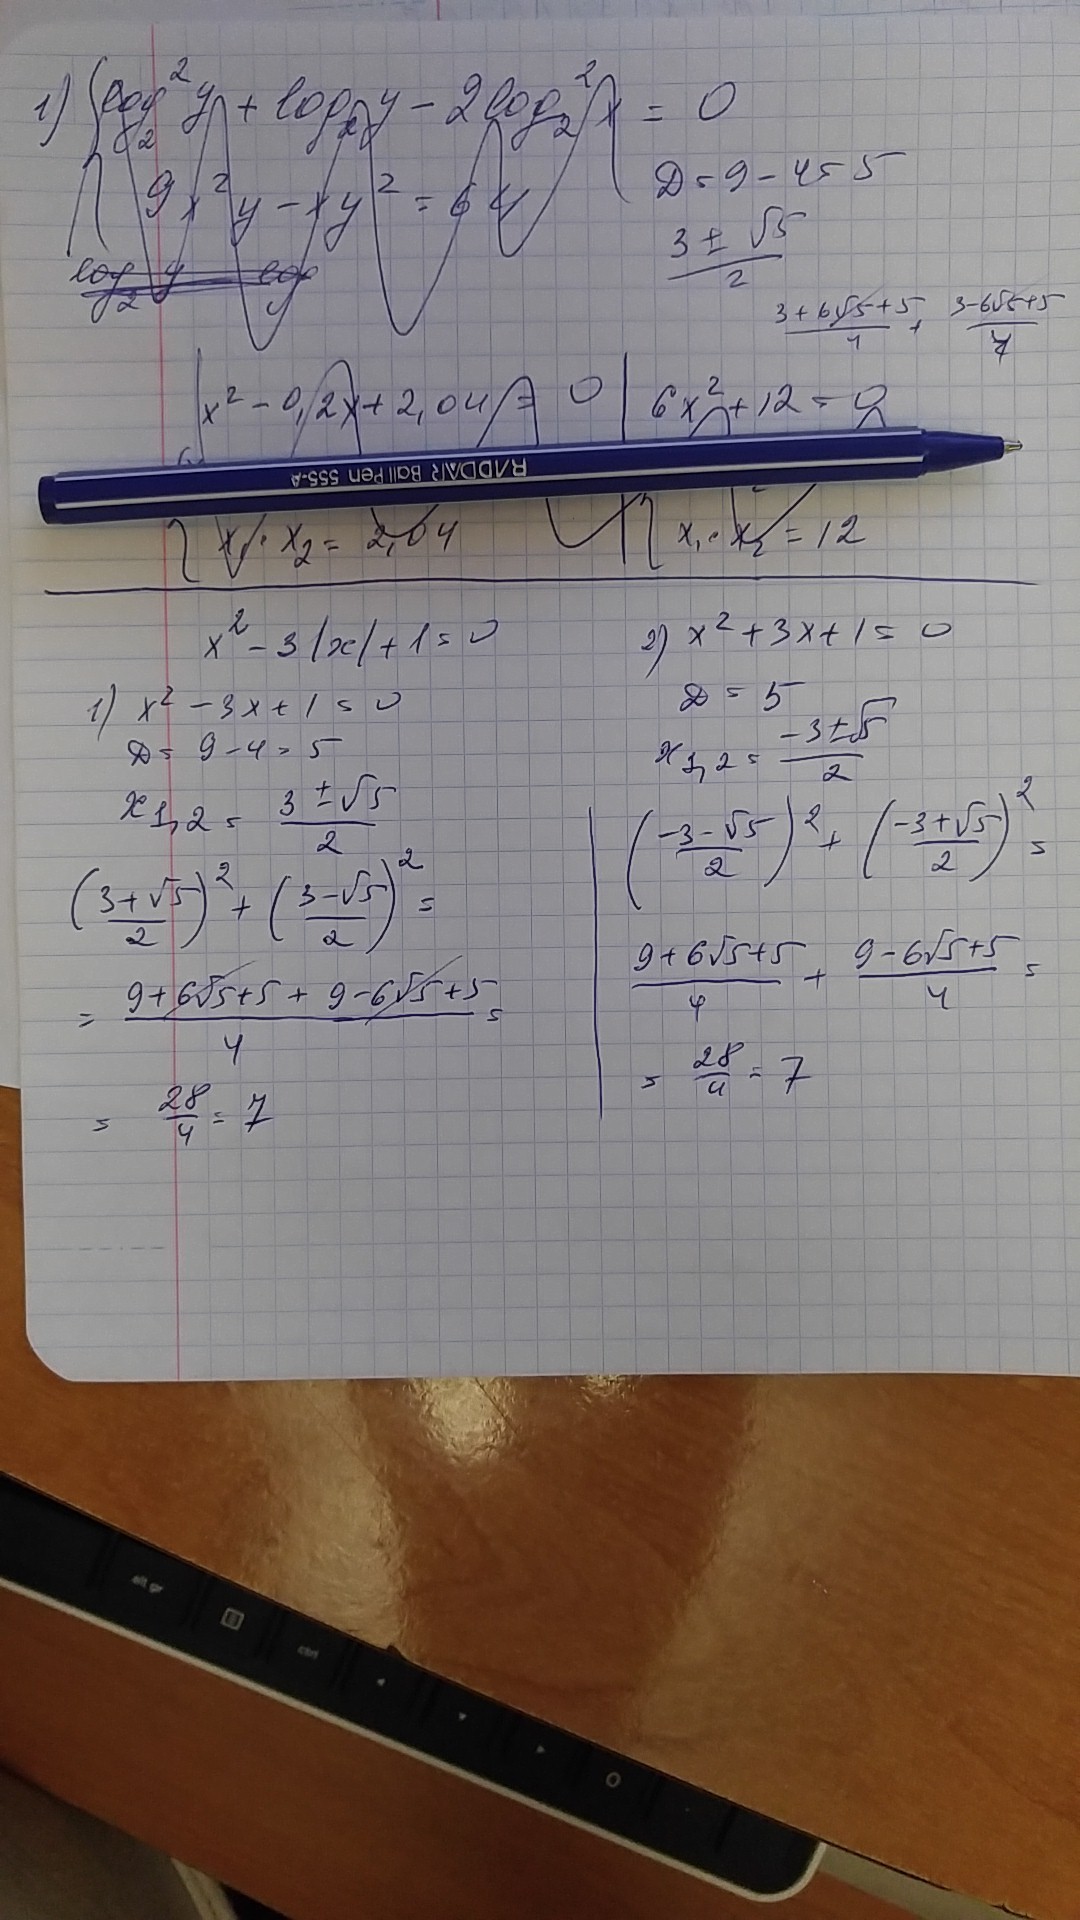 1) { log₂²y + log₂y - 2log₂²x = 0
9x²y - xy² = 64
D = 9 - 4 = 5
(3 ± √5)/2
log₂y log
(3+6√5+5)/4 + (3-6√5+5)/4
x² - 0,2x + 2,04 = 0
6x² + 12 = 0
RADDAR Ball Pen 555-A
x₁ · x₂ = 2,04
x₁ · x₂ = 12
x² - 3|x| + 1 = 0
1) x² - 3x + 1 = 0
D = 9 - 4 = 5
x₁,₂ = (3 ± √5)/2
((3+√5)/2)² + ((3-√5)/2)² =
= (9+6√5+5 + 9-6√5+5)/4 =
= 28/4 = 7
2) x² + 3x + 1 = 0
D = 5
x₁,₂ = (-3 ± √5)/2
((-3-√5)/2)² + ((-3+√5)/2)² =
(9+6√5+5)/4 + (9-6√5+5)/4 =
= 28/4 = 7
alt gr
ctrl